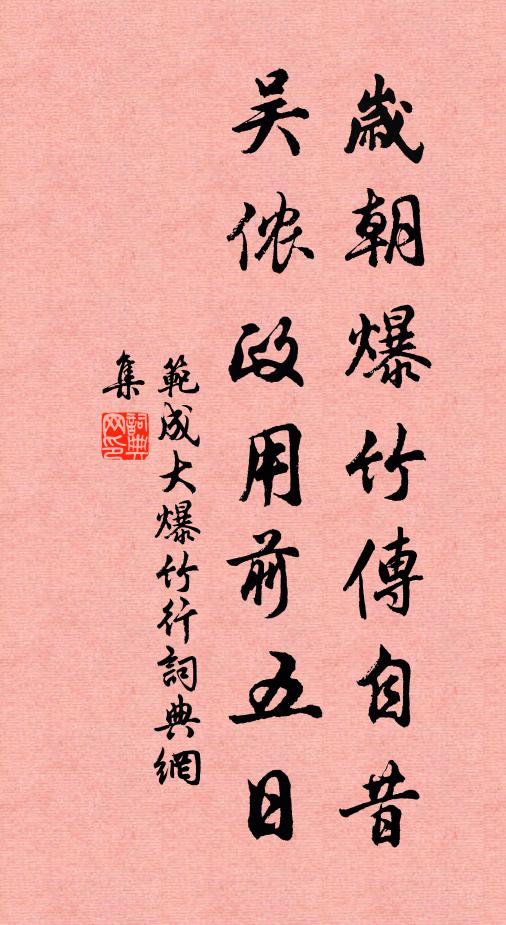 歲朝爆竹傳自昔
吴侬政用前五日
範成大爆竹行詞典網
集
詞典网印